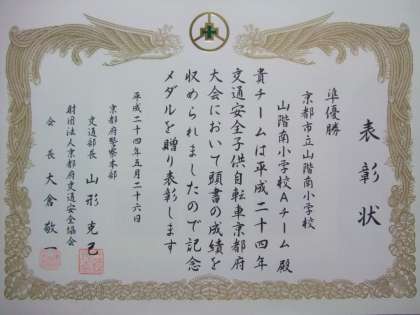 表彰状
準優勝
京都市立山階南小学校
山階南小学校Aチーム殿
貴チームは平成二十四年
交通安全子供自転車京都府
大会において頭書の成績を
収められましたので記念
メダルを贈り表彰します
平成二十四年五月二十六日
京都府警察本部
交通部長 山形克己
財団法人京都府交通安全協会
会長 大倉敬一